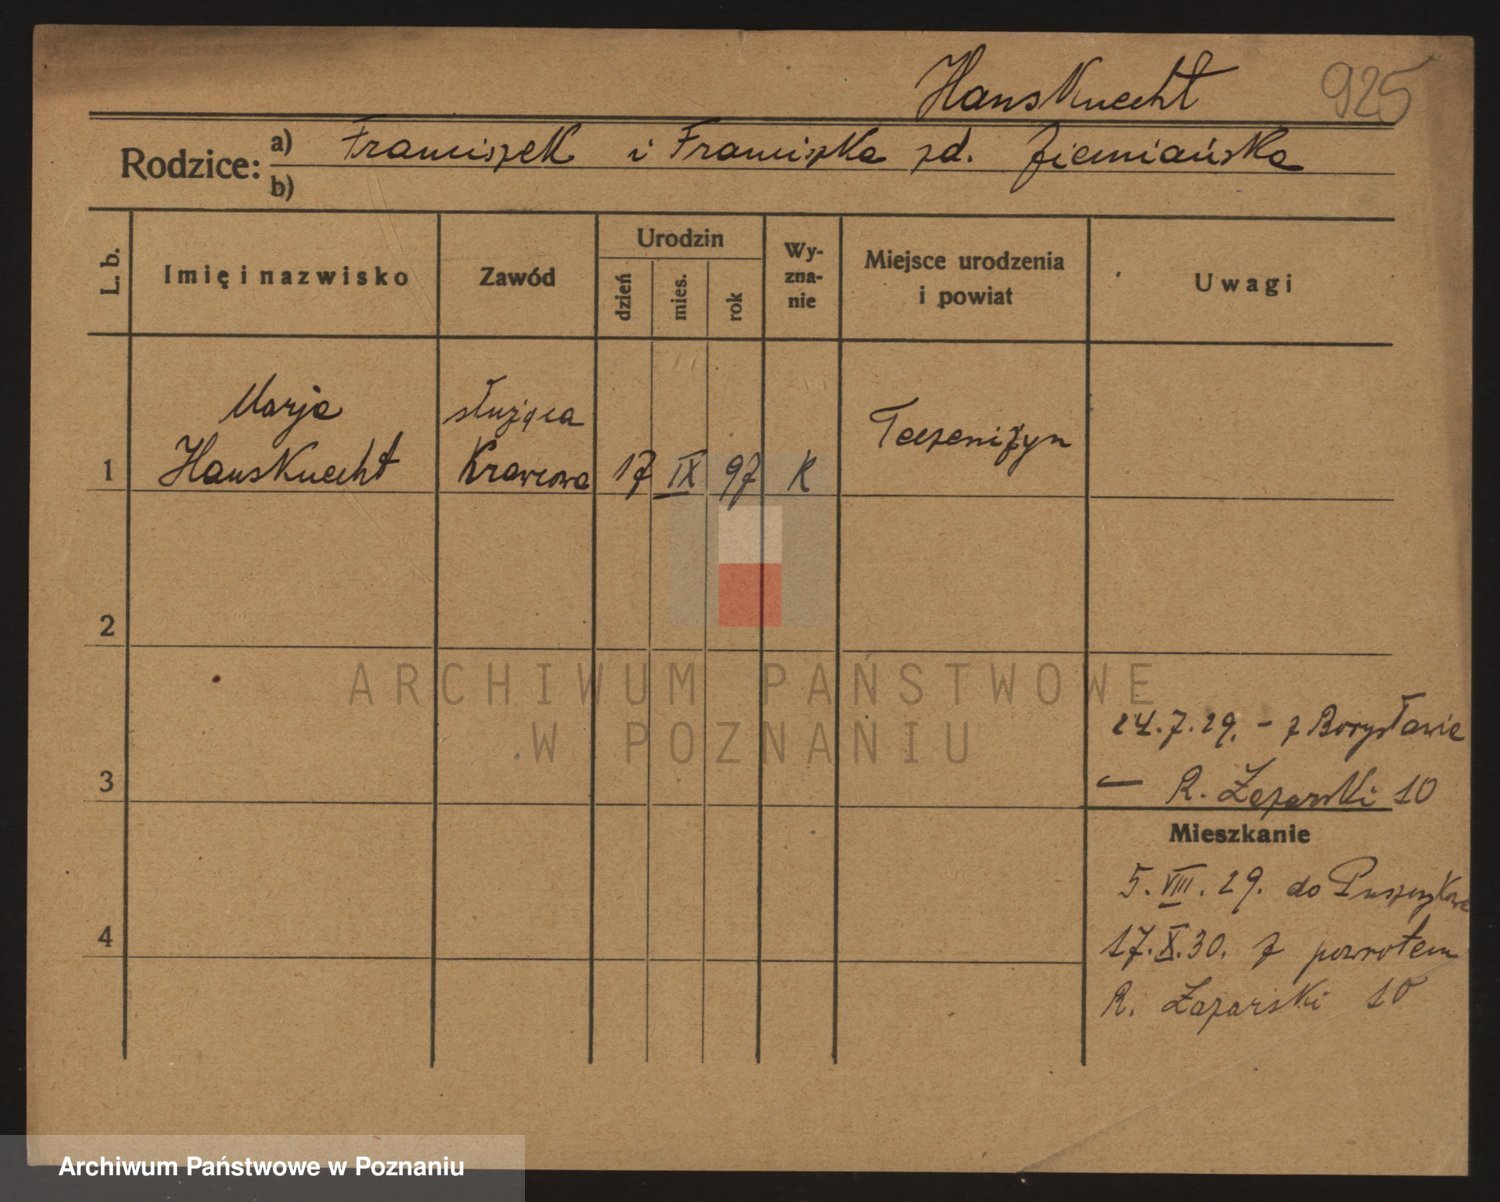 HansKnecht 925
Rodzice: a) Franciszek i Franciszka zd. Ziemiańska
b)
L. b.
Imię i nazwisko
Zawód
Urodzin
dzień
mies.
rok
Wy-
zna-
nie
Miejsce urodzenia
i powiat
Uwagi
Marja służąca
1 HansKnecht Krawcowa 17 IX 97 K
2
ARCHIWUM PAŃSTWOWE
W POZNANIU
24.7.29. – z Borysławia
3 — R. Łazarski 10
Mieszkanie
5. VIII. 29. do Puszczykowa
4 17.X.30. z powrotem
R. Łazarski 10
Archiwum Państwowe w Poznaniu